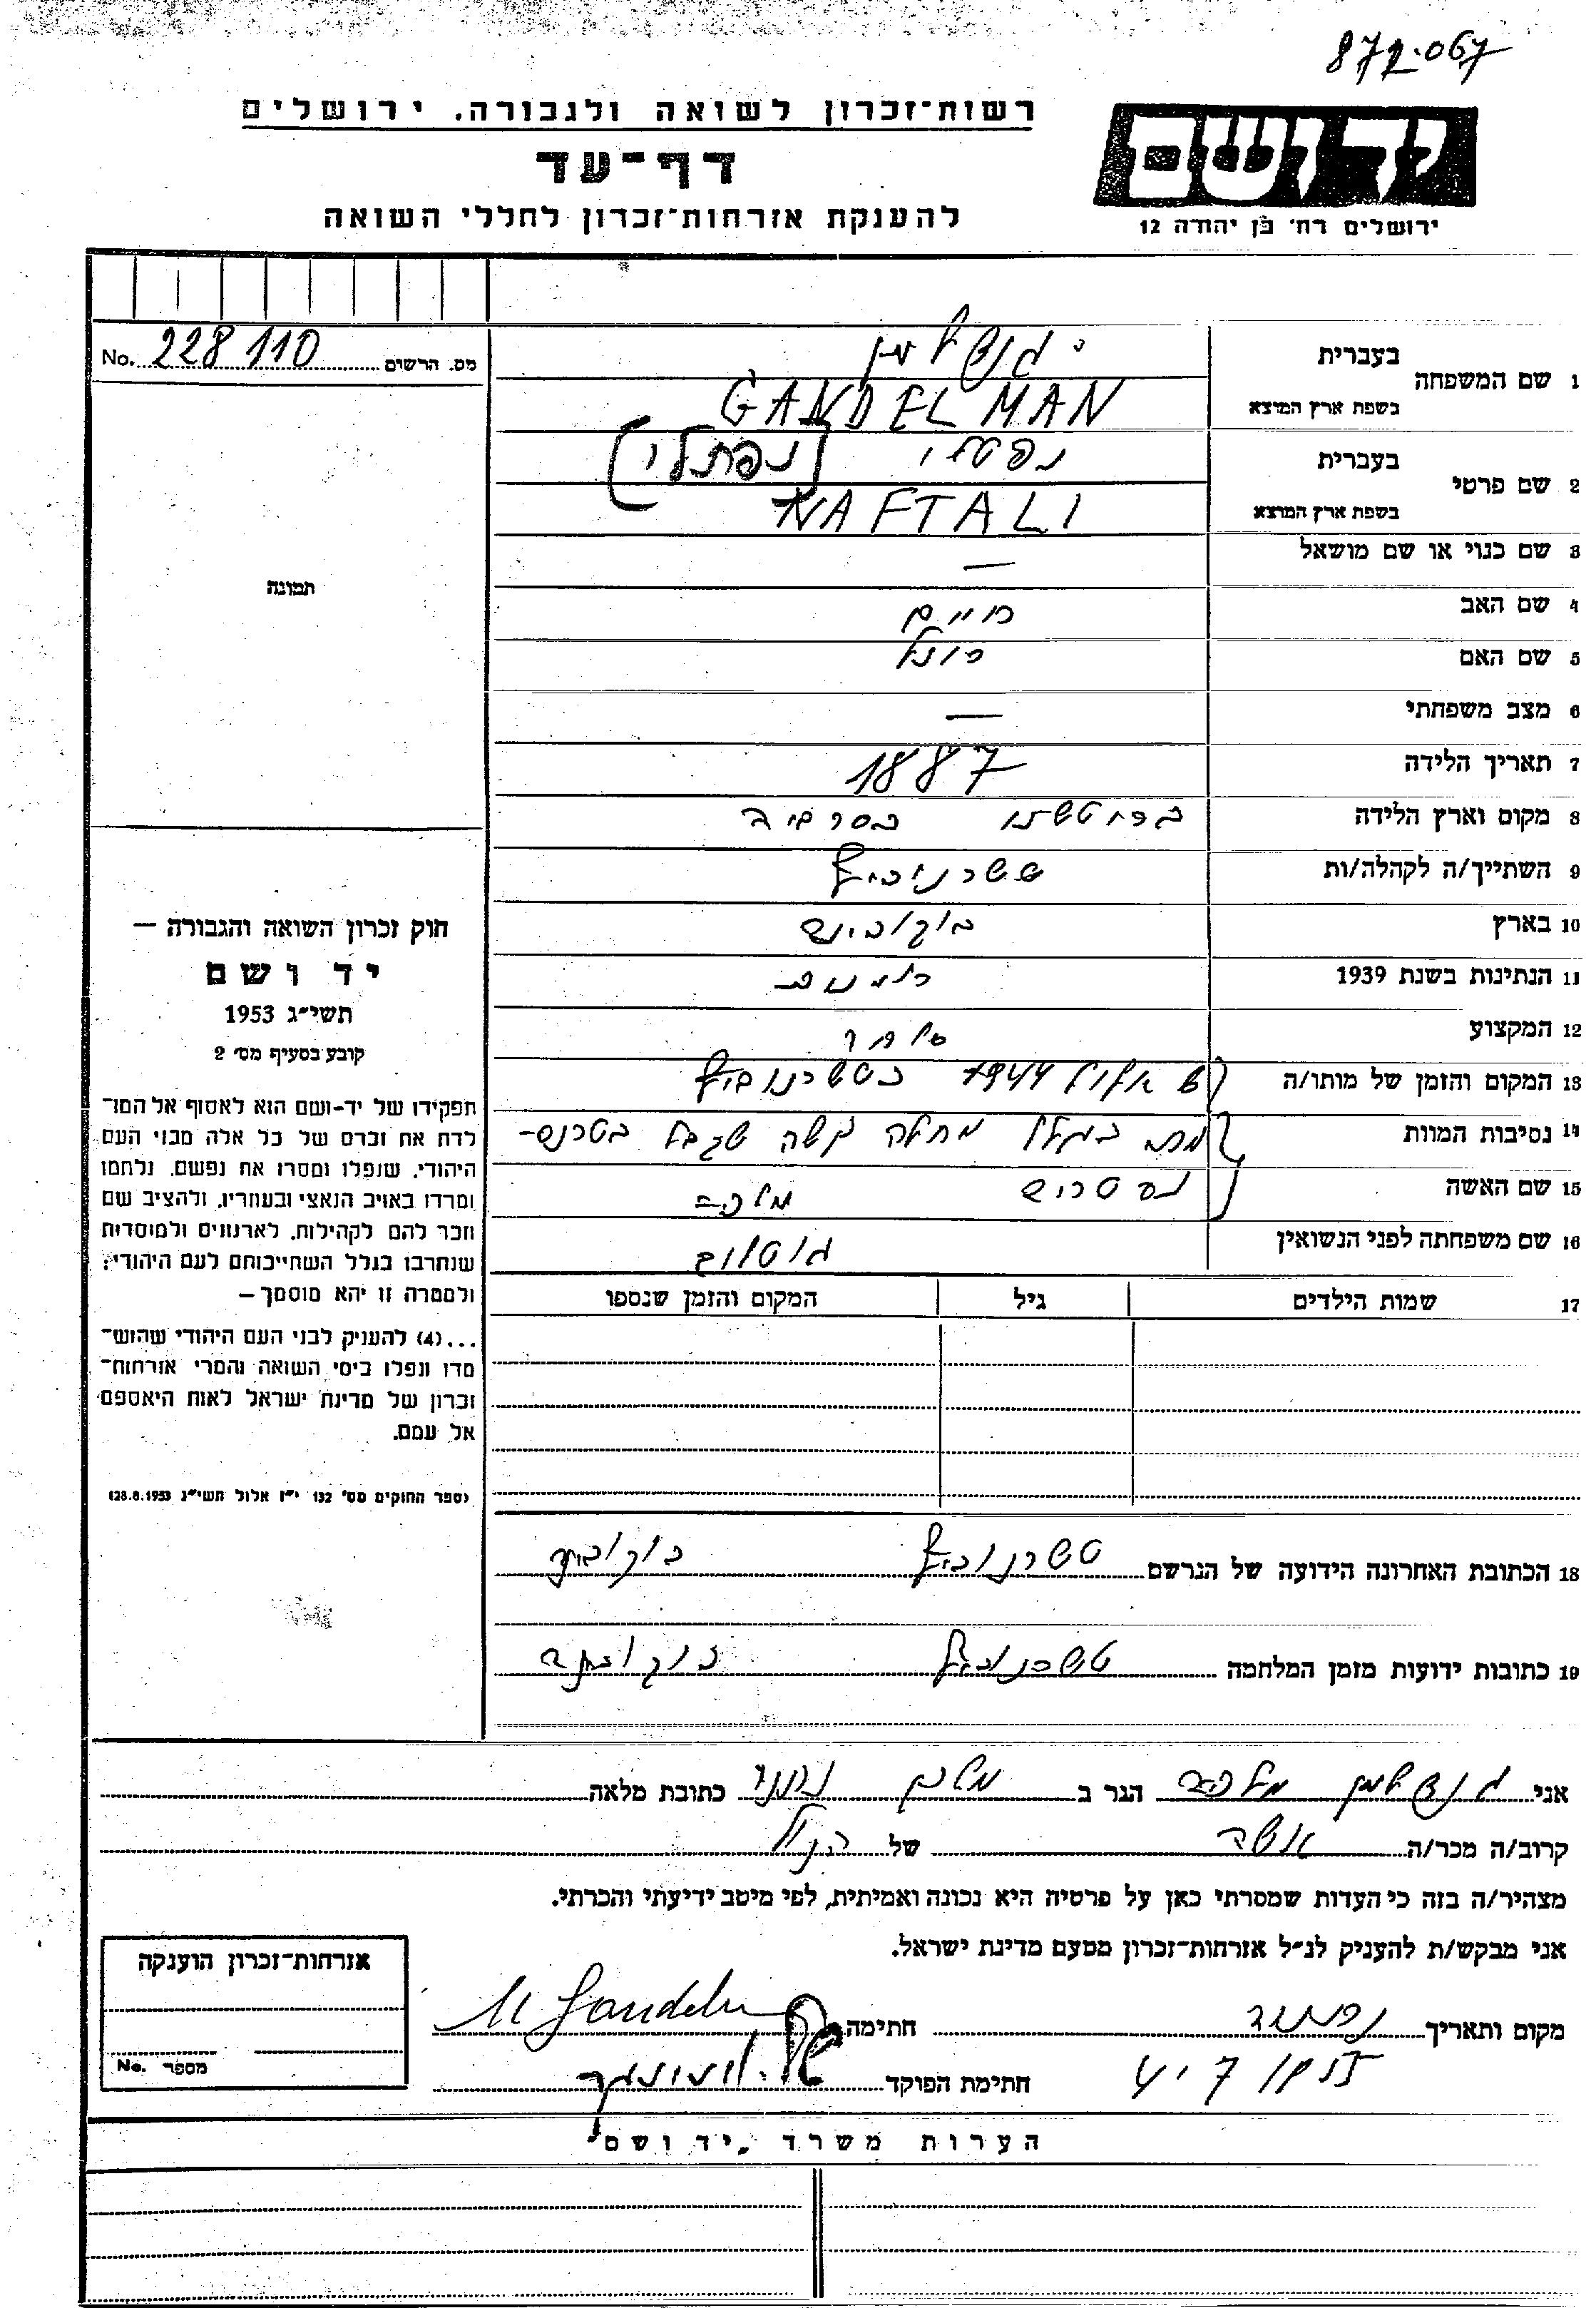 872.067
רשות־זכרון לשואה ולגבורה. ירושלים
דף־עד
להענקת אזרחות־זכרון לחללי השואה
יד ושם
ירושלים רח' בן יהודה 12
מס. הרשום No. 228 110
תמונה
חוק זכרון השואה והגבורה —
יד ושם
תשי״ג 1953
קובע בסעיף מס' 2
תפקידו של יד-ושם הוא לאסוף אל המו־
לדת את זכרם של כל אלה מבני העם
היהודי, שנפלו ומסרו את נפשם, נלחמו
ומרדו באויב הנאצי ובעוזריו, ולהציב שם
וזכר להם לקהילות, לארגונים ולמוסדות
שנחרבו בגלל השתייכותם לעם היהודי;
ולמטרה זו יהא מוסמך —
...(4) להעניק לבני העם היהודי שהוש־
מדו ונפלו בימי השואה והמרי אזרחות־
זכרון של מדינת ישראל לאות היאספם
אל עמם.
(ספר החוקים מס' 132 י״ז אלול תשי״ג 28.8.1953)
1 שם המשפחה בעברית גנדלמן
בשפת ארץ המוצא GANDELMAN
2 שם פרטי בעברית נפטלי (נפתלי)
בשפת ארץ המוצא NAFTALI
3 שם כנוי או שם מושאל —
4 שם האב חיים
5 שם האם
6 מצב משפחתי —
7 תאריך הלידה 1887
8 מקום וארץ הלידה בסרביה
9 השתייך/ה לקהלה/ות טשרנוביץ
10 בארץ בוקובינה
11 הנתינות בשנת 1939 רומנית
12 המקצוע סוחר
13 המקום והזמן של מותו/ה 1944 בטשרנוביץ
14 נסיבות המוות מת בגלל מחלה קשה שקבל בטרנס-
15 שם האשה נסטריה מלכה
16 שם משפחתה לפני הנשואין
17 שמות הילדים גיל המקום והזמן שנספו
18 הכתובת האחרונה הידועה של הנרשם טשרנוביץ בוקובינה
19 כתובות ידועות מזמן המלחמה טשרנוביץ בוקובינה
אני גנדלמן מלכה הגר ב כתובת מלאה
קרוב/ה מכר/ה אשה של הנ״ל
מצהיר/ה בזה כי העדות שמסרתי כאן על פרטיה היא נכונה ואמיתית, לפי מיטב ידיעתי והכרתי.
אני מבקש/ת להעניק לנ״ל אזרחות־זכרון מטעם מדינת ישראל.
מקום ותאריך נתניה חתימה M Gandelm
חתימת הפוקד
אזרחות־זכרון הוענקה
מספר No.
הערות משרד „יד ושם"